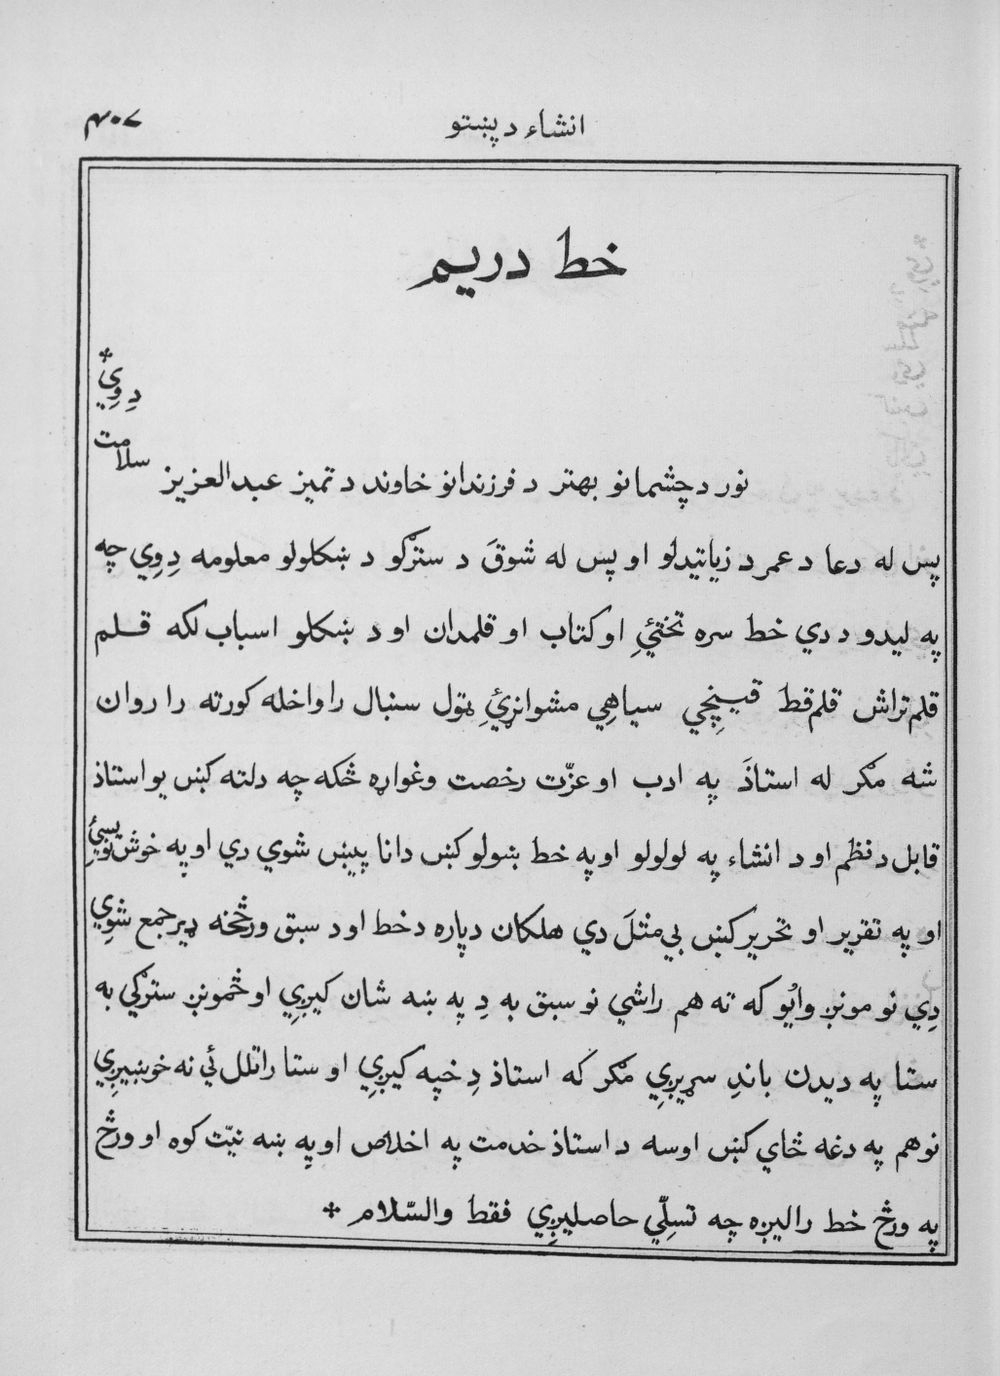 انشاء د پښتو
۴۰۷
خط دریم
نور د چشمانو بهتر د فرزندانو خاوند د تمیز عبدالعزیز سلامت دِوِي *
پس له دعا د عمر د زیاتیدلو او پس له شوقَ د سترګو د ښکلولو معلومه دِوِي چه
په لیدو د دي خط سره تختئِ او کتاب او قلمدان او د ښکلو اسباب لکه قلم
قلم‌تراش قلم‌قط قینچِي سیاهِي مشوانړئِ ټول سنبال را واخله کورته را روان
شه مګر له استاذَ په ادب او عزّت رخصت وغواړه څکه چه دلته کښ یو استاذ
قابل د نظم او د انشاء په لولولو او په خط ښولو کښ دانا پیښ شوي دي او په خوش‌نویسئِ
او په تقریر او تحریر کښ بي‌مثلَ دي هلکان دپاره د خط او د سبق ورڅخه ډیر جمع شوِي
دِي نو مونږ وایُو که ته هم راشي نو سبق به دِ په ښه شان کیږِي او څمونږ سترګي به
ستا په دیدن باندِ سړیږِي مګر که استاذ دِ خپه کیږِي او ستا راتلل ئي نه خوښیږِي
نو هم په دغه څاي کښ اوسه د استاذ خدمت په اخلاص او په ښه نیّت کوه او ورځ
په ورځ خط رالیږه چه تسلِّي حاصلیږِي فقط والسّلام *